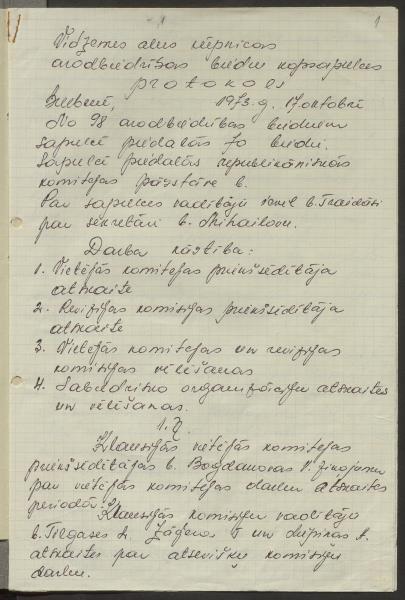 1
Vidzemes alus rūpnīcas
arodbiedrības biedru kopsapulces
protokols
Gulbenē, 1973. g. 17. oktobrī
No 98 arodbiedrības biedriem
sapulcē piedalās 70 biedri.
Sapulcē piedalās republikāniskās
komitejas pārstāve b.
Par sapulces vadītāju ievēl b.
par sekretāri b. Mihailovu.
Darba kārtība:
1. Vietējās komitejas priekšsēdētāja
atskaite
2. Revīzijas komisijas priekšsēdētāja
atskaite
3. Vietējās komitejas un revīzijas
komisijas vēlēšanas
4. Sabiedrisko organizāciju atskaites
un vēlēšanas.
1. §.
Klausījās vietējās komitejas
priekšsēdētājas b. Bogdanovas V. ziņojumu
par vietējās komitejas darbu atskaites
periodā:
Klausījās komisiju vadītāju
b. A. un A.
atskaites par atsevišķu komisiju
darbu.